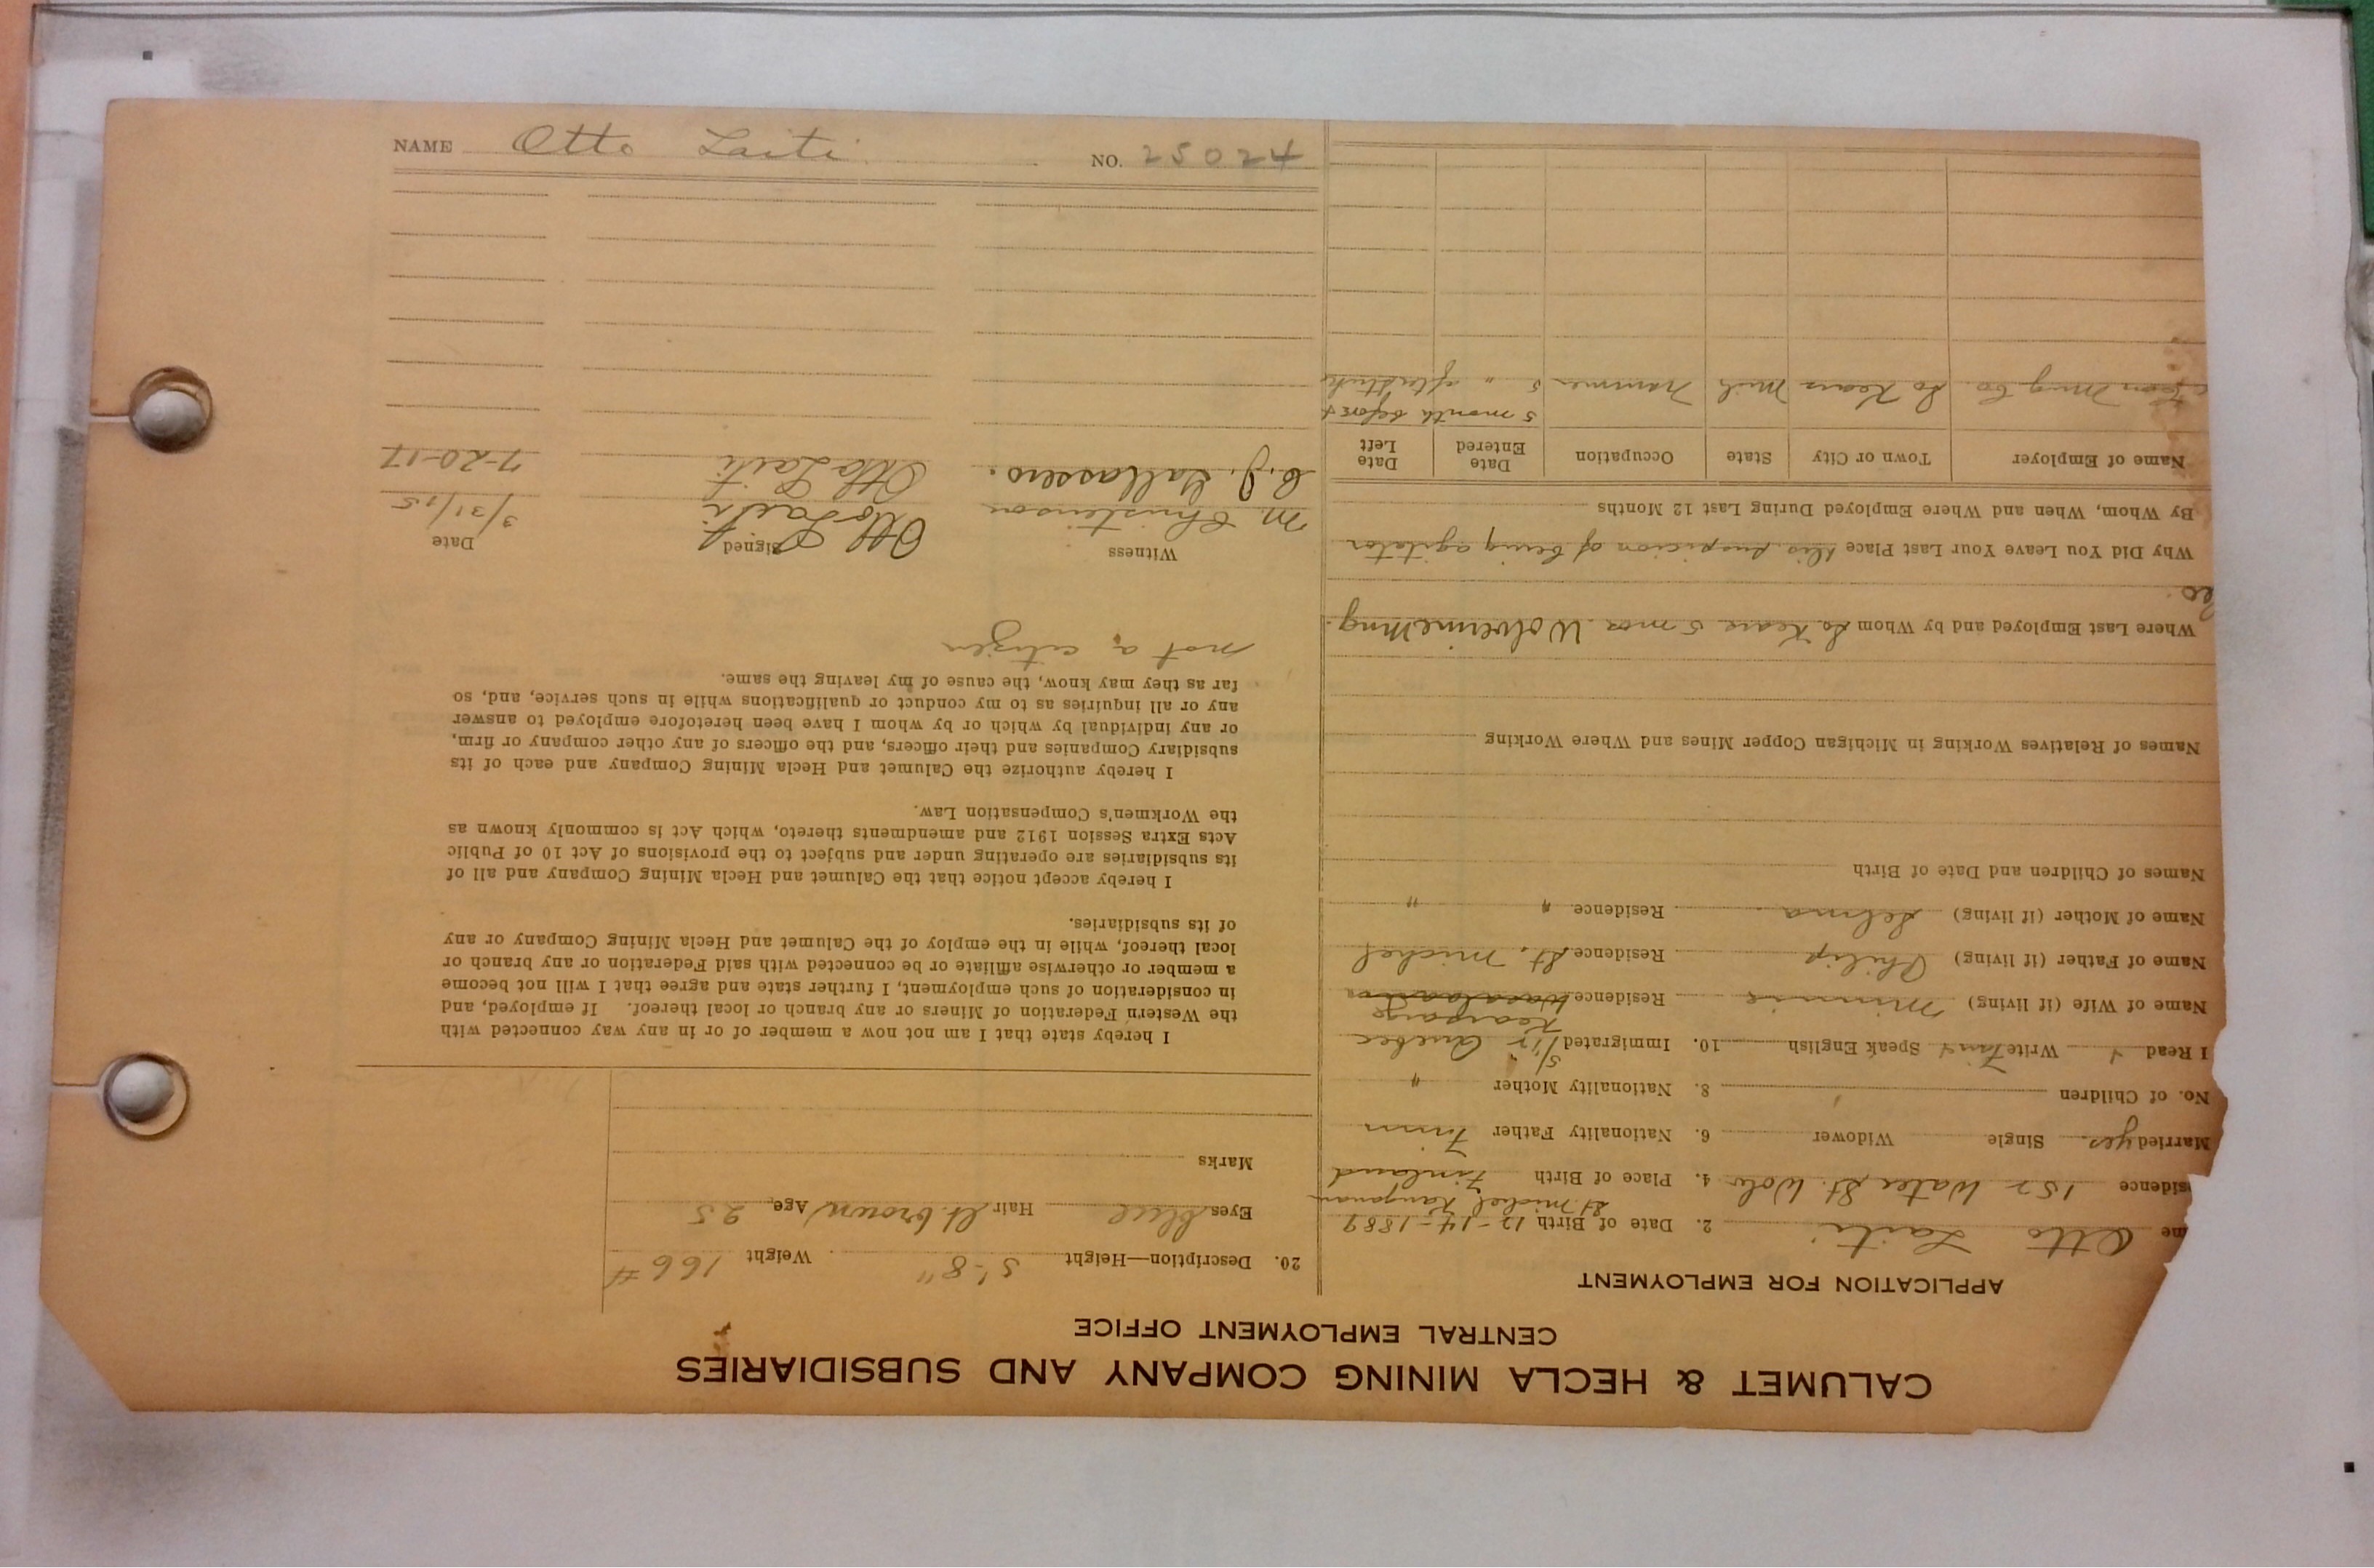 CALUMET & HECLA MINING COMPANY AND SUBSIDIARIES
CENTRAL EMPLOYMENT OFFICE
APPLICATION FOR EMPLOYMENT
me Otto Laiti 2. Date of Birth 12-14-1889
St Michel
sidence 152 Water St. Wolv. 4. Place of Birth Finland
Married yes. Single Widower 6. Nationality Father Finn
No. of Children 8. Nationality Mother "
I Read Write Speak English 10. Immigrated Quebec
Kearsarge
Name of Wife (if living) Minnie Residence
Name of Father (if living) Philip Residence St. Michel
Name of Mother (if living) Selma Residence " "
Names of Children and Date of Birth
Names of Relatives Working in Michigan Copper Mines and Where Working
Where Last Employed and by Whom So Kears 5 mos Wolverine Mng.
Co.
Why Did You Leave Your Last Place this suspicion of being agitator
By Whom, When and Where Employed During Last 12 Months
Name of Employer Town or City State Occupation Date Entered Date Left
5 month before &
Mng Co. So Kears Mich Trammer 5 " after strike
20. Description—Height 5'-8" Weight 166 #
Eyes blue Hair lt. brown Age 25
Marks
I hereby state that I am not now a member of or in any way connected with
the Western Federation of Miners or any branch or local thereof. If employed, and
in consideration of such employment, I further state and agree that I will not become
a member or otherwise affiliate or be connected with said Federation or any branch or
local thereof, while in the employ of the Calumet and Hecla Mining Company or any
of its subsidiaries.
I hereby accept notice that the Calumet and Hecla Mining Company and all of
its subsidiaries are operating under and subject to the provisions of Act 10 of Public
Acts Extra Session 1912 and amendments thereto, which Act is commonly known as
the Workmen's Compensation Law.
I hereby authorize the Calumet and Hecla Mining Company and each of its
subsidiary Companies and their officers, and the officers of any other company or firm,
or any individual by which or by whom I have been heretofore employed to answer
any or all inquiries as to my conduct or qualifications while in such service, and, so
far as they may know, the cause of my leaving the same.
not a citizen
Witness Signed Date
M. Christenson Otto Laiti 3/31/15
C. J. Gallassero. Otto Laiti 7-20-17
NAME Otto Laiti NO. 25024